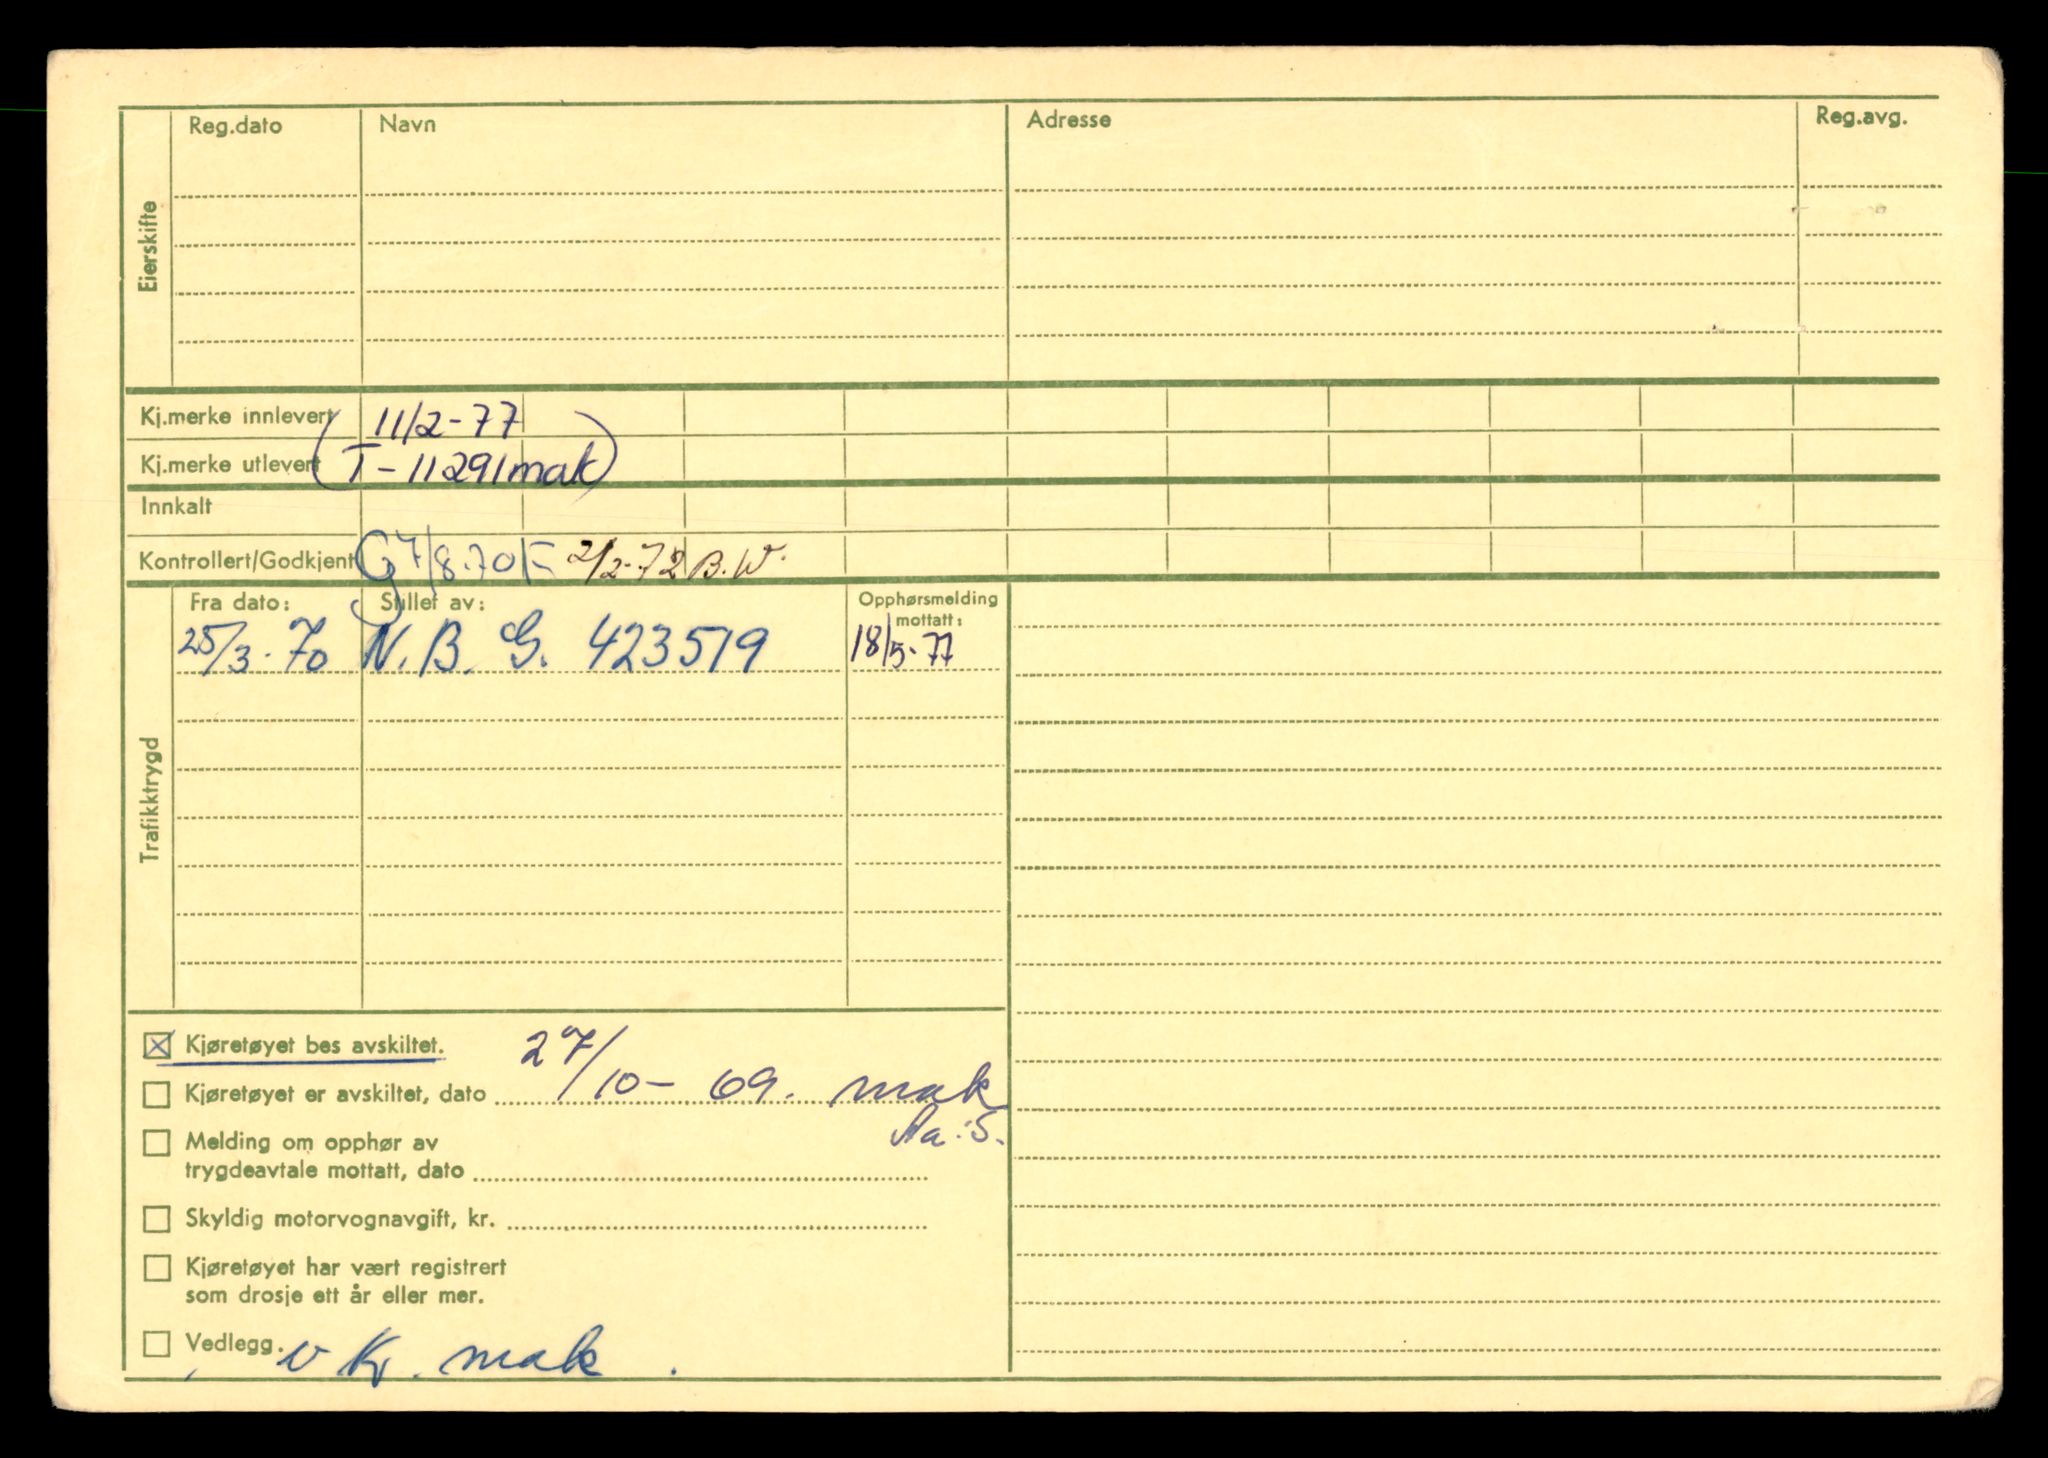 Reg.dato Navn Adresse Reg.avg.
Eierskifte
Kj.merke innlevert 11/2-77
Kj.merke utlevert (T-11291 mak)
Innkalt
Kontrollert/Godkjent G 7/8.70 2/2-72 B.W.
Trafikktrygd
Fra dato: Stillet av: Opphørsmelding
mottatt:
25/3-70 N.B.G. 423519 18/5-77
Kjøretøyet bes avskiltet. 27/10-69. mak
Kjøretøyet er avskiltet, dato
Aa.S.
Melding om opphør av
trygdeavtale mottatt, dato
Skyldig motorvognavgift, kr.
Kjøretøyet har vært registrert
som drosje ett år eller mer.
Vedlegg. v Kr. mak.